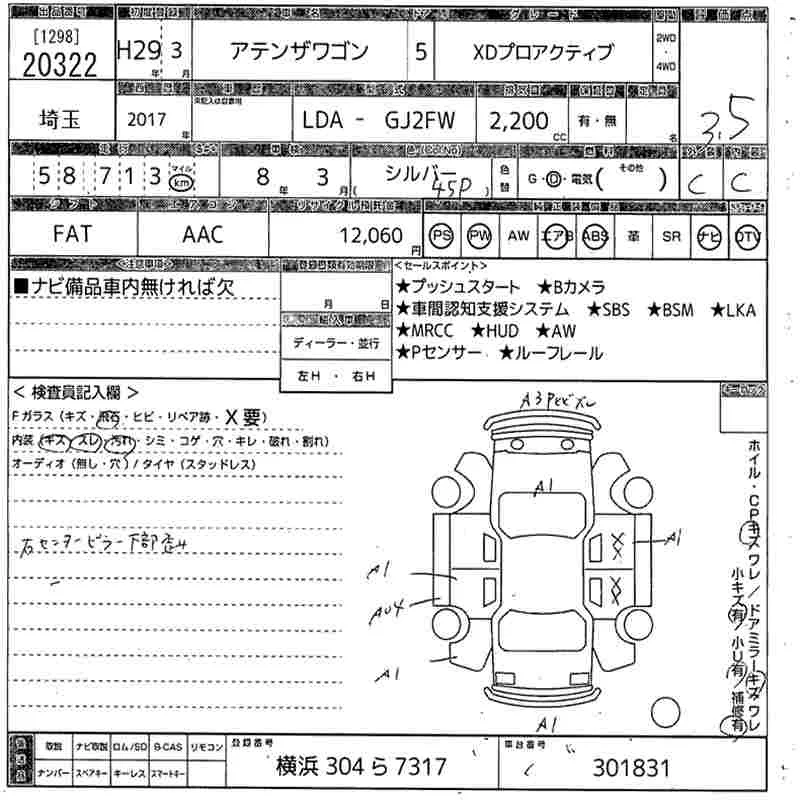 出品番号 初度登録 車名 ドア グレード 評価点
[1298]
20322
H29年 3月
アテンザワゴン
5
XDプロアクティブ
2WD
・
4WD
埼玉
西暦 車歴 型式 排気量 定員
2017年
未記入は自家用
LDA - GJ2FW
2,200 CC
有・無
名
3.5
走行 車検 色(Co.No) 燃料 外装 内装
58713
マイル
km
8年 3月
シルバー
45P
色替
G・D・電気( その他 )
C
C
シフト エアコン リサイクル預託金
FAT
AAC
12,060円
PS PW AW エアB ABS 革 SR ナビ DTV
<注意事項>
■ナビ備品車内無ければ欠
登録書類有効期限
月 日
輸入車
ディーラー・並行
左H ・ 右H
<セールスポイント>
★プッシュスタート ★Bカメラ
★車間認知支援システム ★SBS ★BSM ★LKA
★MRCC ★HUD ★AW
★Pセンサー ★ルーフレール
< 検査員記入欄 >
Fガラス(キズ・飛石・ヒビ・リペア跡・X要)
内装(キズ・スレ・汚れ・シミ・コゲ・穴・キレ・破れ・割れ)
オーディオ(無し・穴)/タイヤ(スタッドレス)
右センターピラー下部歪み
A1
XX
XX
A1
A1
A1
A1
ホイル・CPキズワレ/ドアミラーキズワレ
小キズ有/小U有/補修有
取説 ナビ取説 ロム/SD B-CAS リモコン
ナンバー スペアキー キーレス スマートキー
登録番号
横浜 304 ら 7317
車台番号
301831